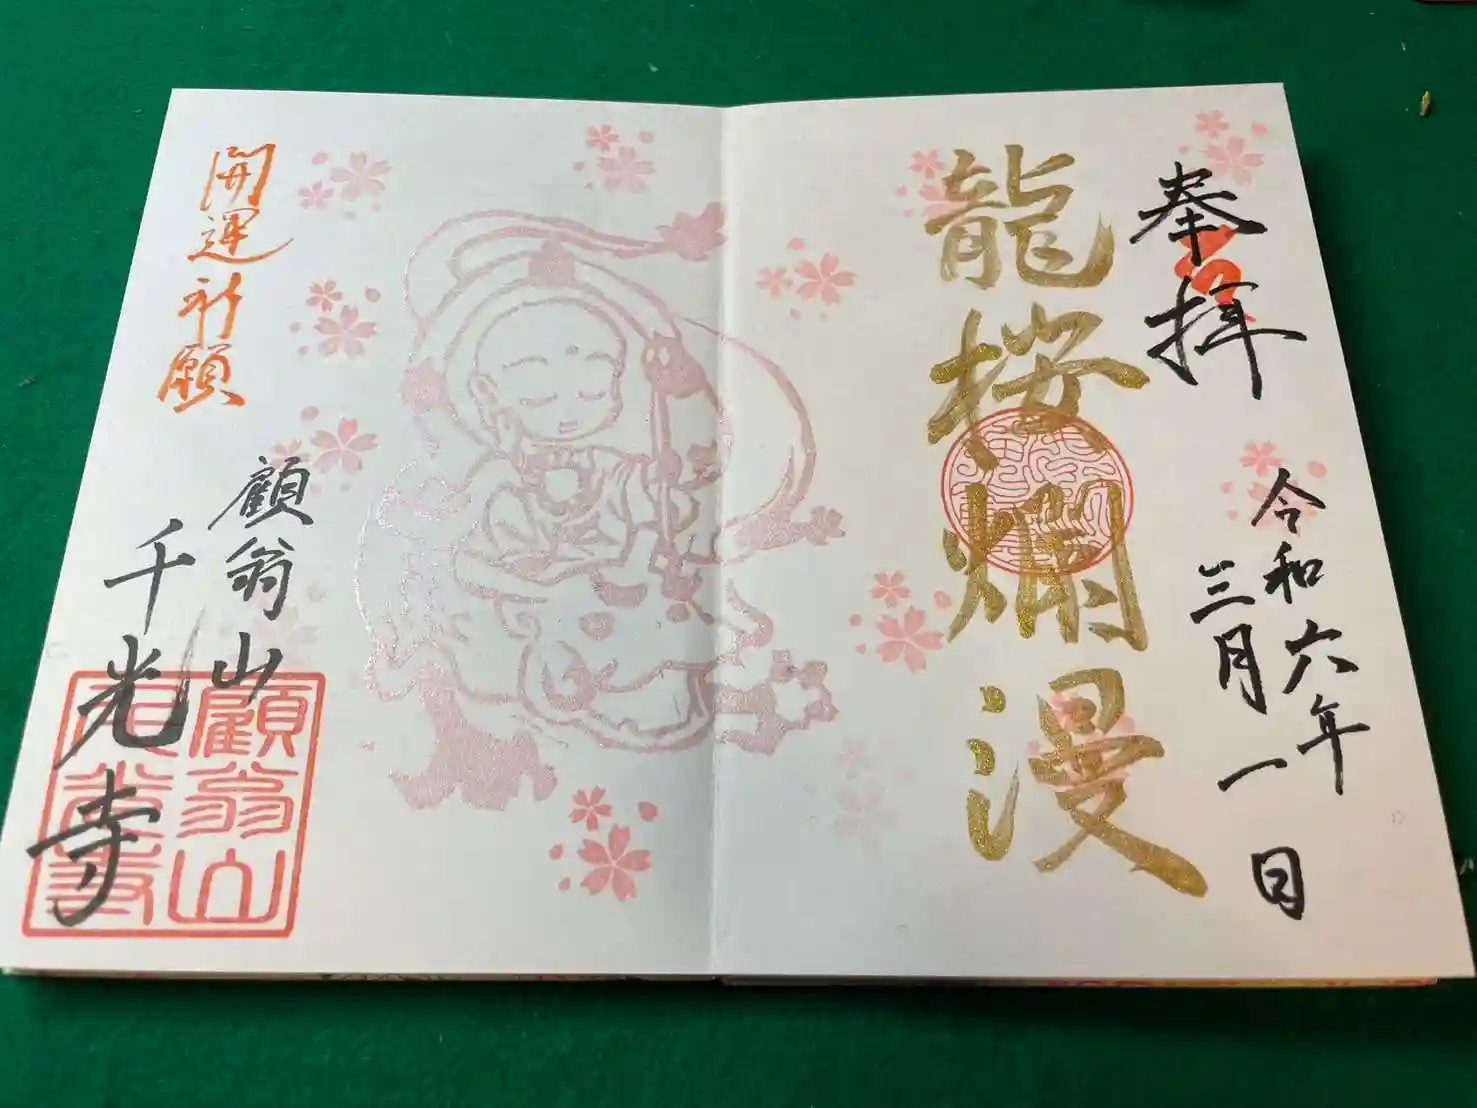 奉拝
令和六年
三月一日
龍桜爛漫
開運祈願
顧翁山
千光寺
顧翁山
千光寺